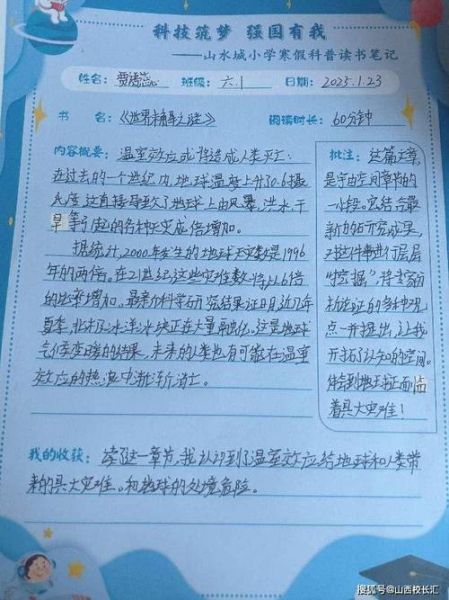 科技筑梦 强国有我
——山水城小学寒假科普读书笔记
姓名： 班级：六.1 日期：2025.1.23
书 名：《世界未解之谜》 阅读时长：60分钟
内容概要：温室效应或将造成人类灭亡：
在过去的一个世纪内，地球温度上升了0.6摄
氏度，这直接导致了地球上由风暴、洪水、干
旱等引起的各种天灾成倍增加。
据统计，2000年发生的地球天灾数是1996
年的两倍。在21世纪这些灾难数将以6倍
的比率增加。最新的科学研究结果证明，近几年
夏季，北极冰洋冰块正在大量融化。这是地球
气候变暖的结果，未来的人类也有可能在温室
效应的热浪中渐渐消亡。
批注：这篇文章
是宇宙空间章节的
一小段。它结合最
新的研究成果，
对这件事进行层层
“挖掘”，将专家的
新论证的各种观
点一并提出，让我
开拓了认知的空间。
体会到地球正面临
着巨大灾难！
我的收获：读了这一章节，我认识到了温室效应给地球和人类带
来的巨大灾难。和地球的处境危险。
搜狐号@山西校长汇